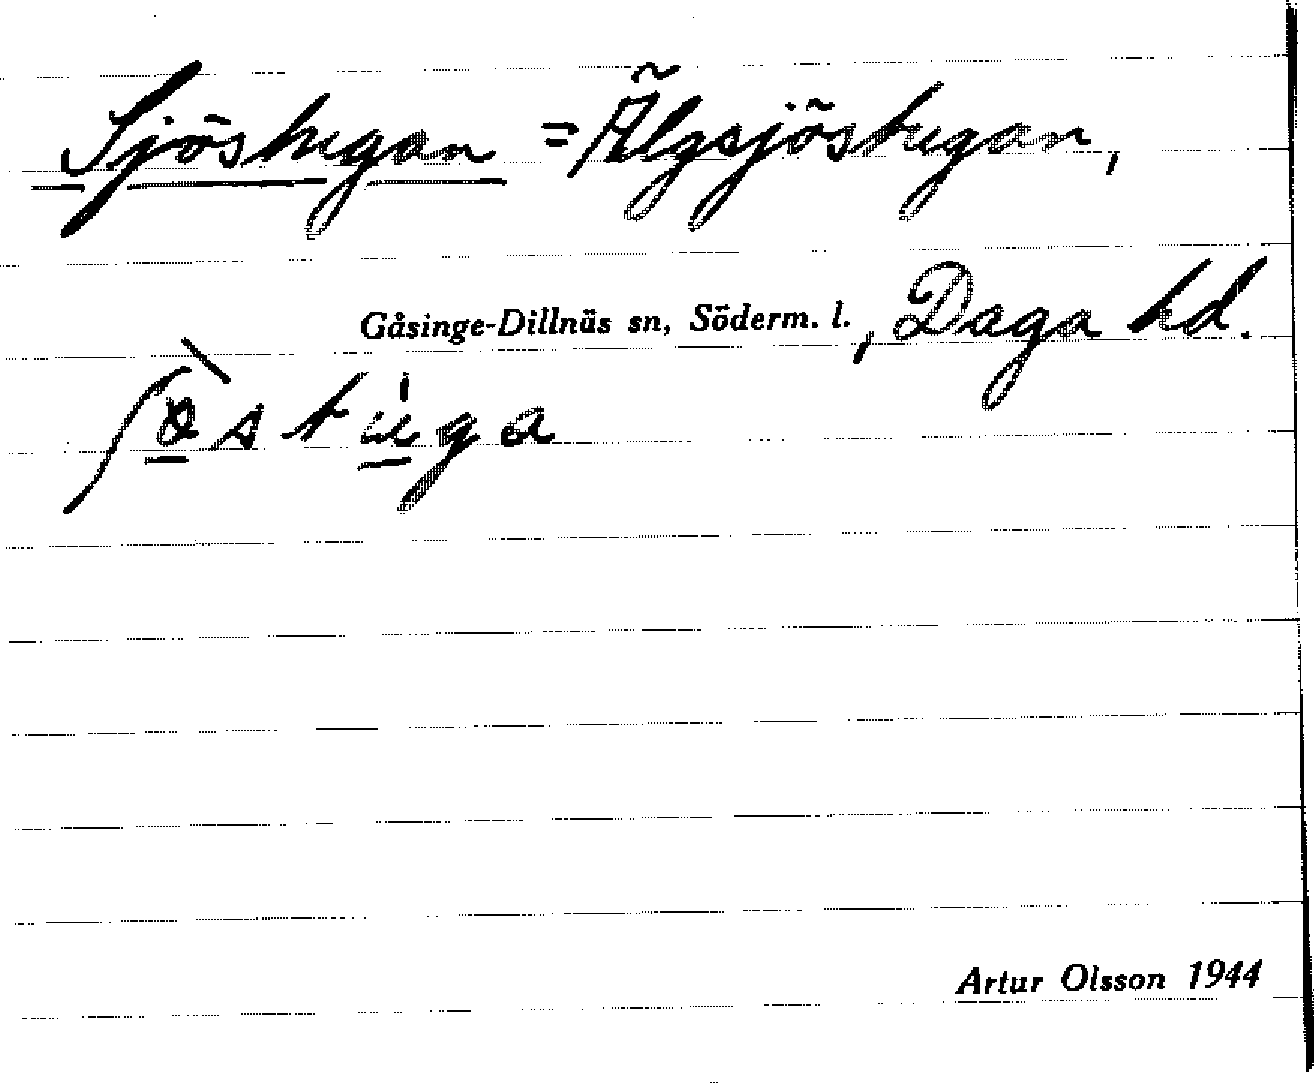 Sjöstugan = Älgsjöstugan,
Gåsinge-Dillnäs sn, Söderm. l., Daga hd.
ʃö̀stu̍ga
Artur Olsson 1944